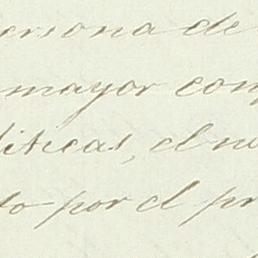 ersona de
mayor com
líticas, el no
to por el pr